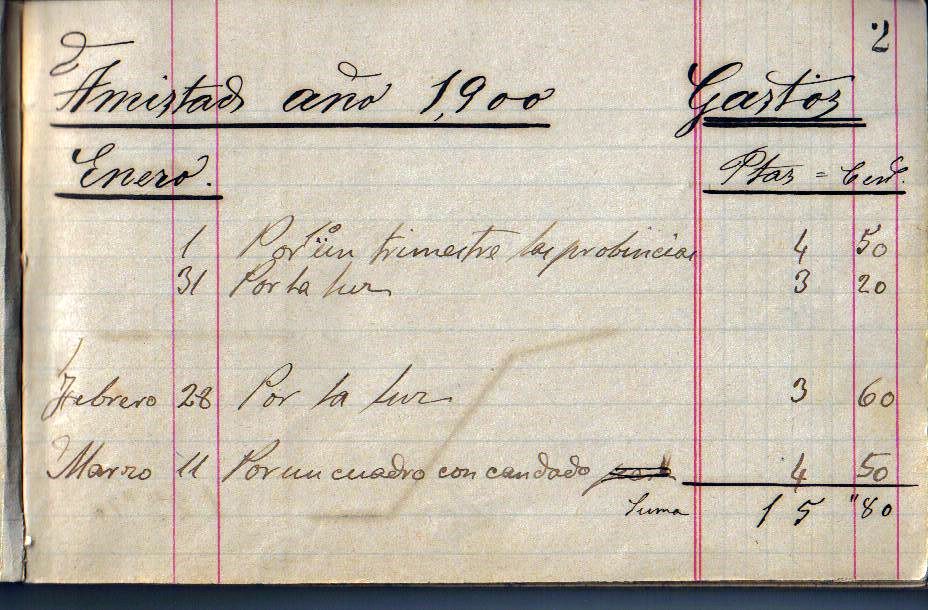 2
Amistad año 1,900 Gastos
Enero. Ptas = Cent.
1 Por 1º un trimestre las probincias 4 50
31 Por la luz 3 20
Febrero 28 Por la luz 3 60
Marzo 11 Por un cuadro con candado 4 50
Suma 15 "80